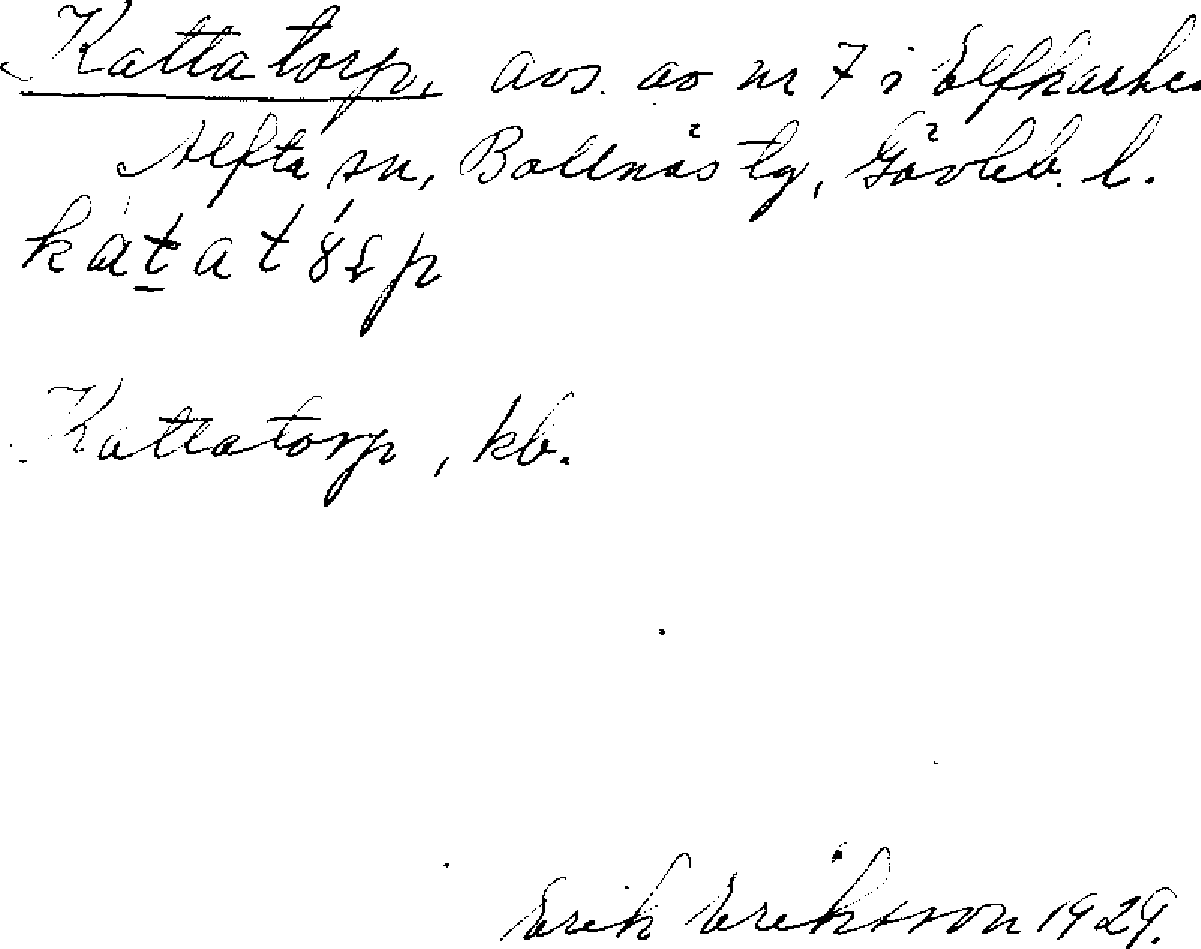 Kattatorp, avs. av nr 7 i Elfkarhed
Alfta sn, Bollnäs tg, Gävleb. l.
kàt̲atórp
Kattatorp, kb.
Erik Eriksson 1929.